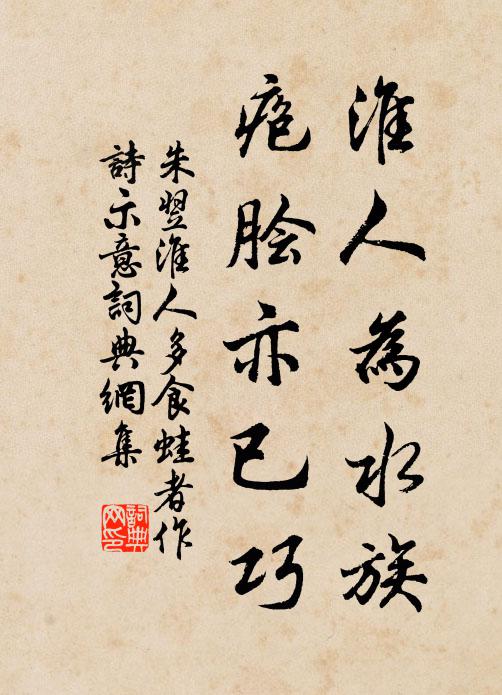 淮人為水族
疱脍亦已巧
朱翌淮人多食蛙者作
詩示意詞典網集
詞典网印